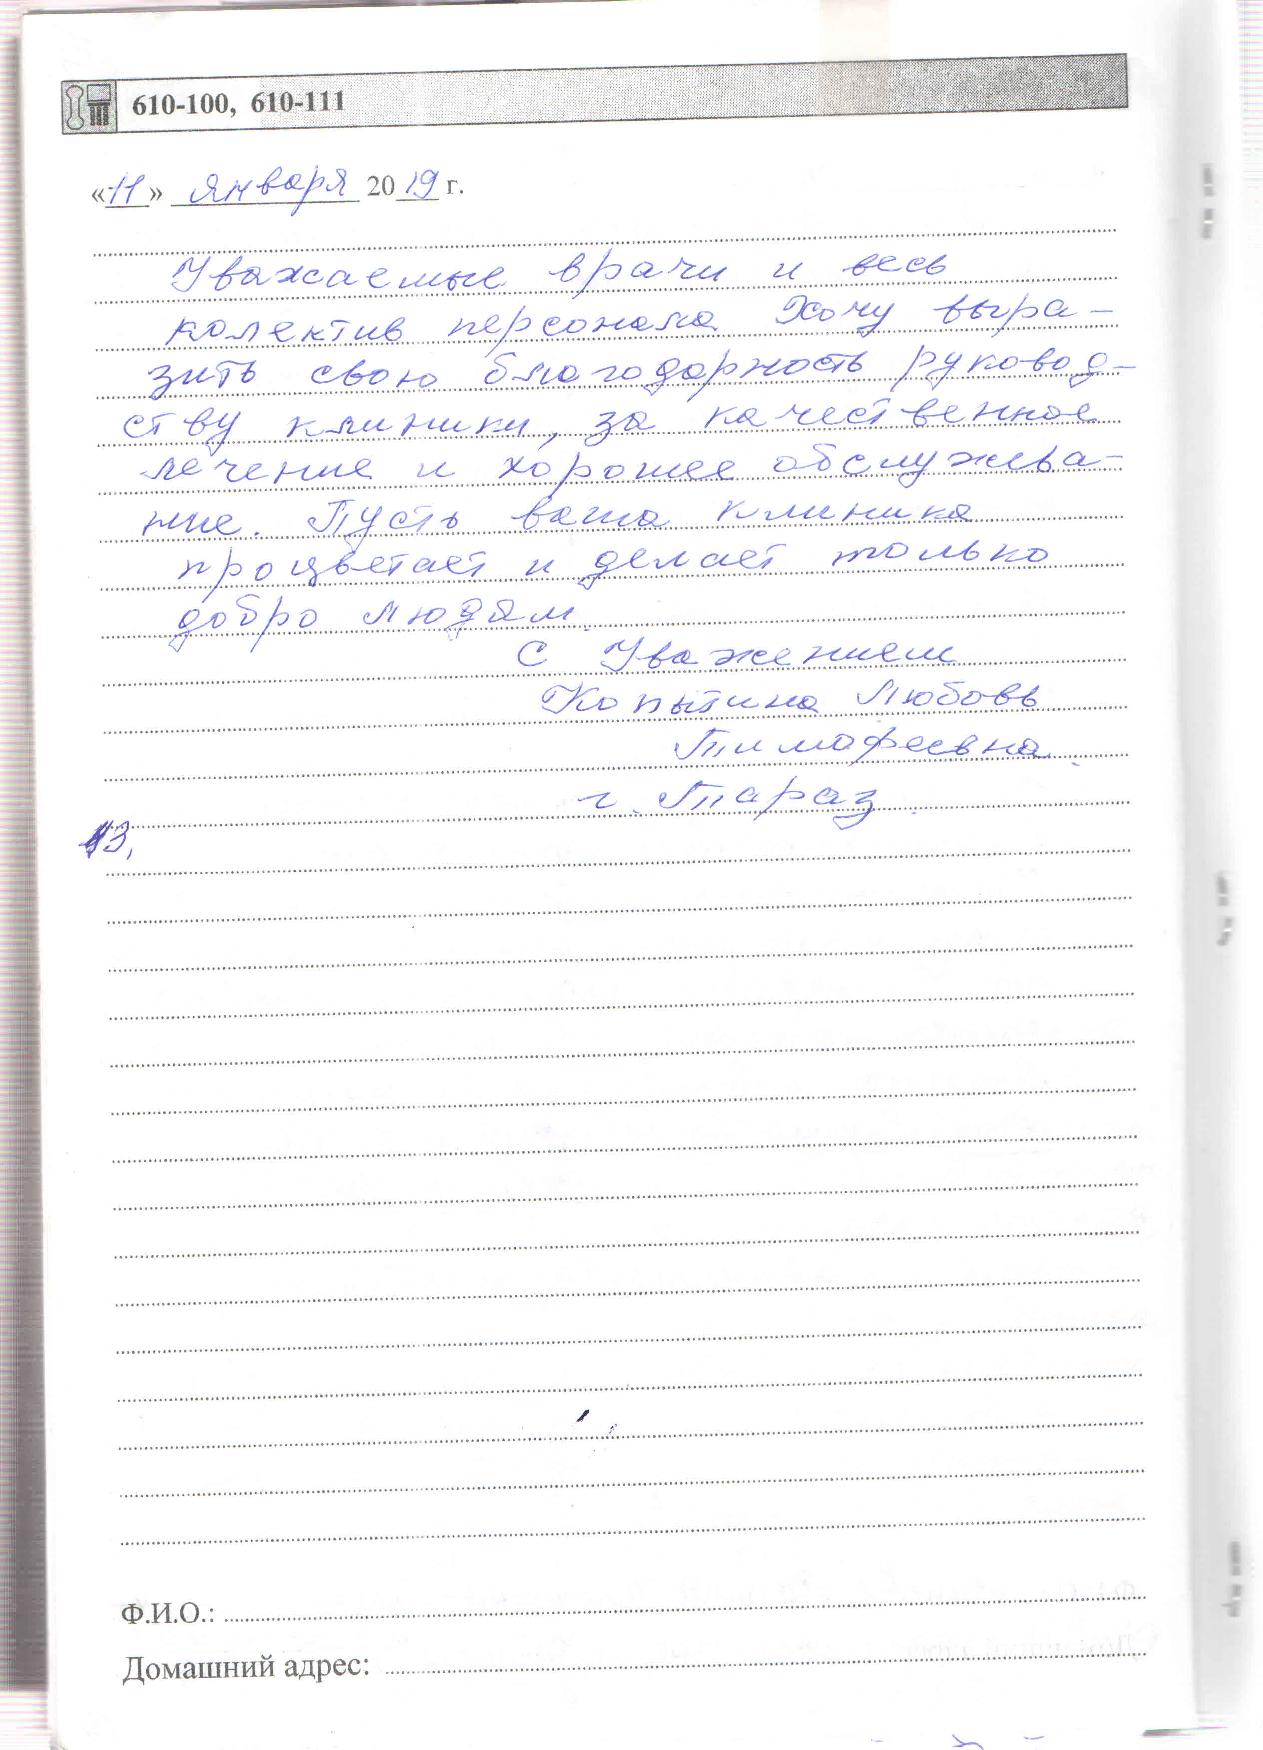 610-100, 610-111
«11» января 2019 г.
Уважаемые врачи и весь
колектив персонала Хочу выра-
зить свою благодарность руковод-
ству клиники, за качественное
лечение и хорошее обслужива-
ние. Пусть ваша клиника
процветает и делает только
добро людям.
С Уважением
Копытина Любовь
Тимофеевна.
г. Тараз.
Ф.И.О.:
Домашний адрес: